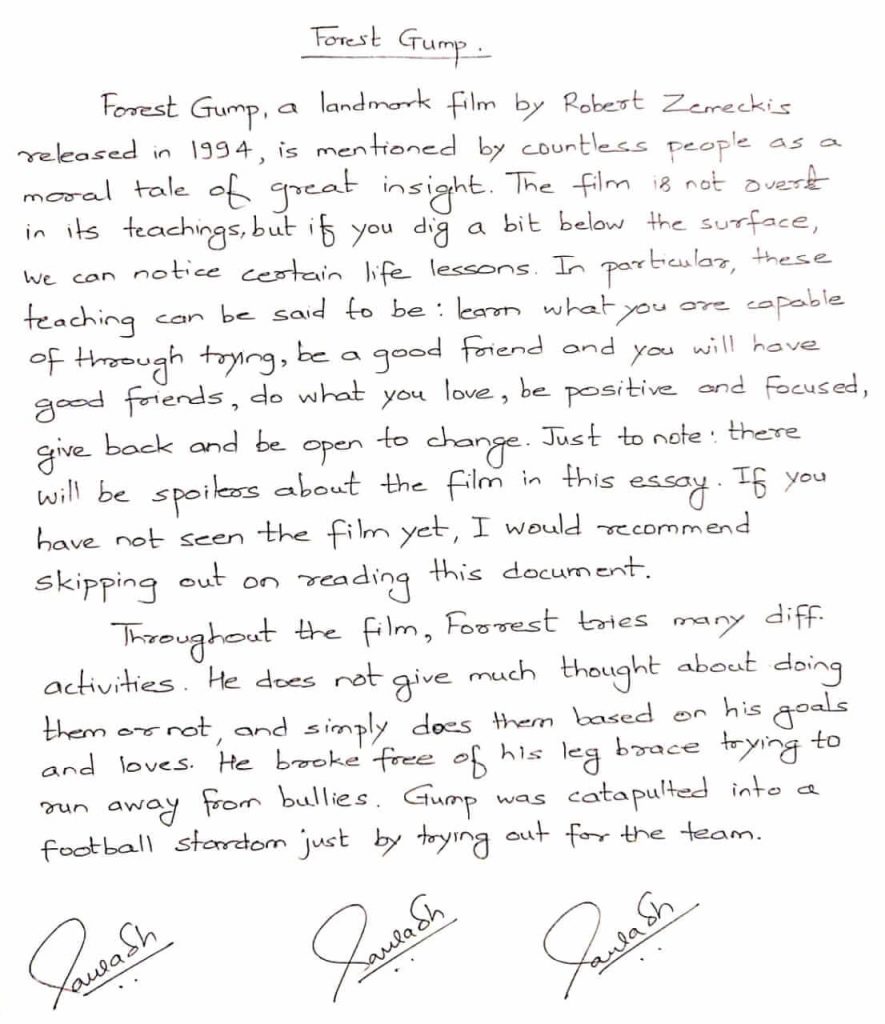 Forest Gump.
Forrest Gump, a landmark film by Robert Zemeckis
released in 1994, is mentioned by countless people as a
moral tale of great insight. The film is not overt
in its teachings, but if you dig a bit below the surface,
we can notice certain life lessons. In particular, these
teaching can be said to be : learn what you are capable
of through trying, be a good friend and you will have
good friends, do what you love, be positive and focused,
give back and be open to change. Just to note : there
will be spoilers about the film in this essay. If you
have not seen the film yet, I would recommend
skipping out on reading this document.
Throughout the film, Forrest tries many diff.
activities. He does not give much thought about doing
them or not, and simply does them based on his goals
and loves. He broke free of his leg brace trying to
run away from bullies. Gump was catapulted into a
football stardom just by trying out for the team.